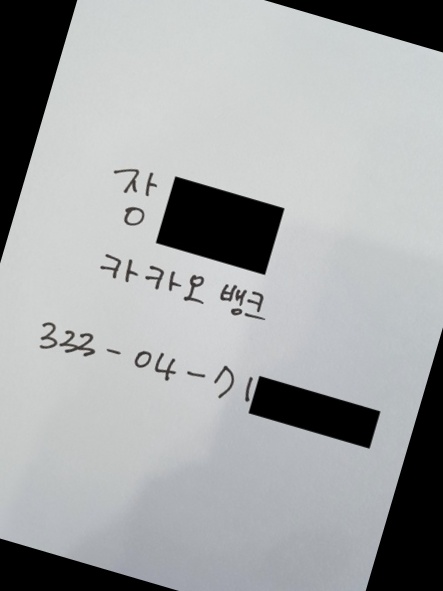 장
카카오 뱅크
333-04-71